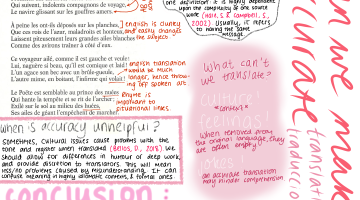 Qui suivent, indolents compagnons de voyage,
Le navire glissant sur les gouffres amers.
À peine les ont-ils déposés sur les planches,
Que ces rois de l'azur, maladroits et honteux,
Laissent piteusement leurs grandes ailes blanches
Comme des avirons traîner à côté d'eux.
Ce voyageur ailé, comme il est gauche et veule!
Lui, naguère si beau, qu'il est comique et laid!
L'un agace son bec avec un brûle-gueule,
L'autre mime, en boitant, l'infirme qui volait!
Le Poète est semblable au prince des nuées
Qui hante la tempête et se rit de l'archer;
Exilé sur le sol au milieu des huées,
Ses ailes de géant l'empêchent de marcher.
English is clunky
and easily changes
the subject
English translation
would be much
longer, hence throw-
ing off spoken art
Rhyme is
important to
situational lines.
one definition. It is highly dependent
upon the complexity of one source
work
2002). Usually, it refers
to making the same
message.
What can't
we translate?
culture
feelings
=context=
When removed from
the original language, they
are often empty.
jokes
an accurate translation
may hinder comprehension.
When is accuracy unhelpful?
SOMETIMES, cultural issues cause problems with the
tone and register when translated (Bellos, D., 2018). We
should allow for differences in humour or deep work,
and provide discretion to translators. This will mean
less/no problems caused by misunderstanding. It can
confuse meaning in highly idiomatic, comedic, & formal ones.
conclusion:
can we make
accurate
translation